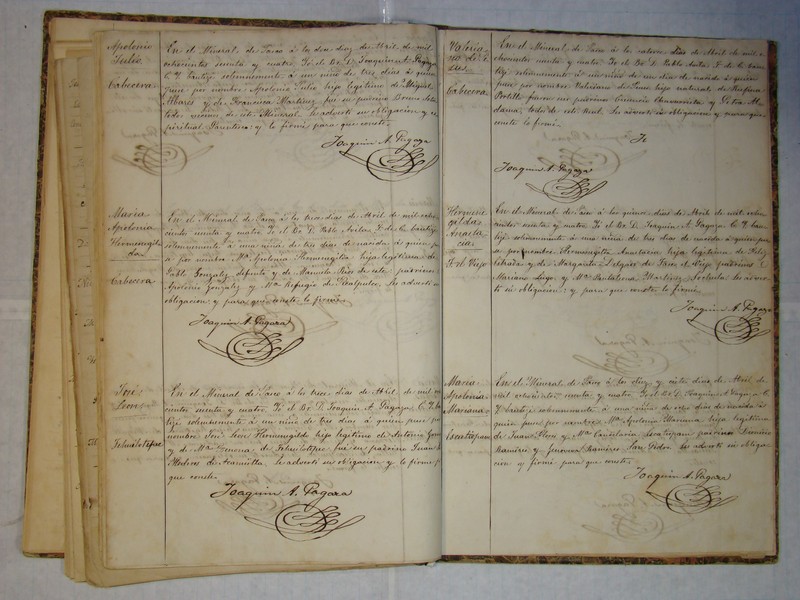 Apolonio
Julio.
Cabecera
En el Mineral de Tasco á los dies dias de Abril de mil
ochocientos secenta y cuatro. Yo el Br. D. Joaquin A. Pagaza
C. Y. bautizé solemnemente á un niño de tres dias á quien
puse por nombre Apolonio Julio hijo legitimo de Miguel
Albares y de Francisca Martinez fue su padrino
todos vecinos de este Mineral le advertí su obligacion y es
piritual Parentesco y lo firmé para que conste.
Joaquin A. Pagaza
Maria
Apolonia
Hermenegilda
Cabecera
En el Mineral de Tasco á los trece dias de Abril de mil ocho
cientos secenta y cuatro Yo el Br. D. Pablo Aviles V. de C. bautizé
solemnemente á una niña de tres dias de nacida á quien pu
se por nombre Ma. Apolonia Hermenegilda hija legitima de
Pablo Gonzalez defunto y de Manuela Rios de este padrinos
Apolonio Gonzalez y Ma. Refugio de Les advertí su
obligacion y para que conste lo firmé.
Joaquin A. Pagaza
José
Leon
Tehuilotepec
En el Mineral de Tasco á los trece dias de Abril de mil
cientos secenta y cuatro Yo el Br. D. Joaquin A. Pagaza C. Y. bau
tizé solemnemente á un niño de tres dias á quien puse por
nombre José Leon Hermenegildo hijo legitimo de Antonio
y de Ma. de Tehuilotepec fue su padrino Juan
de le advertí su obligacion y lo firmé para
que conste.
Joaquin A. Pagaza
Valeria
no de J-
sus.
Cabecera
En el Mineral de Tasco á los catorce dias de Abril de mil o
chocientos secenta y cuatro. Yo el Br. D. Pablo Aviles V. de C. bau
tizé solemnemente á un niño de un dia de nacido á quien
puse por nombre Valeriano de Jesus hijo natural de Rufina
Portillo fueron sus padrinos y Petra Al
dama, todos de este Real. Les advertí su obligacion y para que
conste lo firmé.
Yo
Joaquin A. Pagaza
Hermene
gilda
Anasta
cia.
R. el Viejo
En el Mineral de Tasco á los quince dias de Abril de mil ocho
cientos secenta y cuatro Yo el Br. D. Joaquin A. Pagaza C. Y. bau
tizé solemnemente á una niña de tres dias de nacida á quien pu
se por nombre Hermenegilda Anastacia hija legitima de Feliz
Estrada y de Margarita Delgado de Tasco el Viejo padrinos
Mariano Lugo y Ma. Pantaleona Martinez Les adver
tí su obligacion: y para que conste lo firmé
Joaquin A. Pagaza
Maria
Apolonia
Mariana
En el Mineral de Tasco á los diez y siete dias de Abril de
mil ochocientos secenta y cuatro. Yo el Br. D. Joaquin A. Pagaza C.
Y. bautizé solemnemente á una niña de tres dias de nacida á
quien puse por nombre Ma. Apolonia Mariana hija legitima
de Juan y Ma. Candelaria padrinos
Ramirez y Genoveva Ramirez San Pedro. Les advertí su obliga
cion y firmé para que conste.
Joaquin A. Pagaza